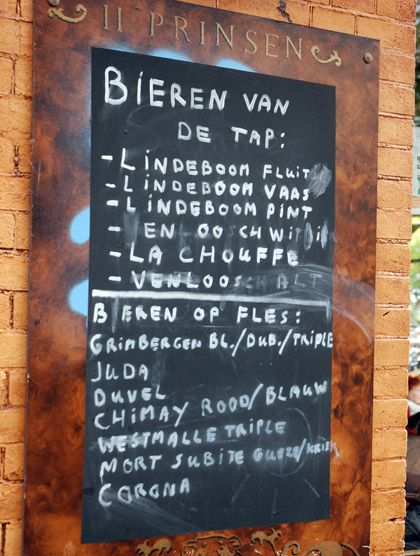 II PRINSEN
BIEREN VAN
DE TAP:
-LINDEBOOM FLUIT
-LINDEBOOM VAAS
-LINDEBOOM PINT
- ENLOOSCHWIT
-LA CHOUFFE
-VENLOOSCH ALT
BIEREN OP FLES:
GRIMBERGEN BL./DUB./TRIPLE
JUDA
DUVEL
CHIMAY ROOD/BLAUW
WESTMALLE TRIPLE
MORT SUBITE GUEZE/KRIEK
CORONA